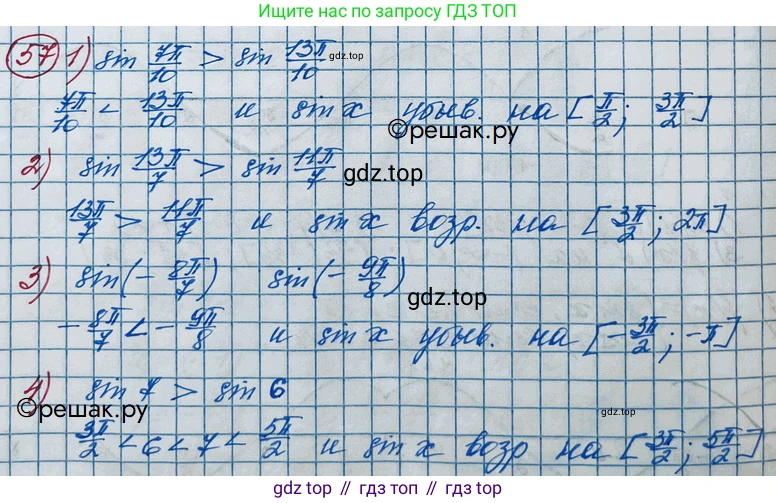 Ищите нас по запросу ГДЗ ТОП
57 1) sin 7π/10 > sin 13π/10
gdz.top
7π/10 < 13π/10 и sin x убыв. на [π/2; 3π/2]
©решак.ру
2) sin 13π/7 > sin 11π/7
gdz.top
13π/7 > 11π/7 и sin x возр. на [3π/2; 2π]
3) sin(-8π/7) sin(-9π/8)
gdz.top
-8π/7 < -9π/8 и sin x убыв. на [-3π/2; -π]
4) sin 7 > sin 6
©решак.ру
gdz.top
3π/2 < 6 < 7 < 5π/2 и sin x возр на [3π/2; 5π/2]
©решак.ру
gdz.top // гдз.топ // gdz.top